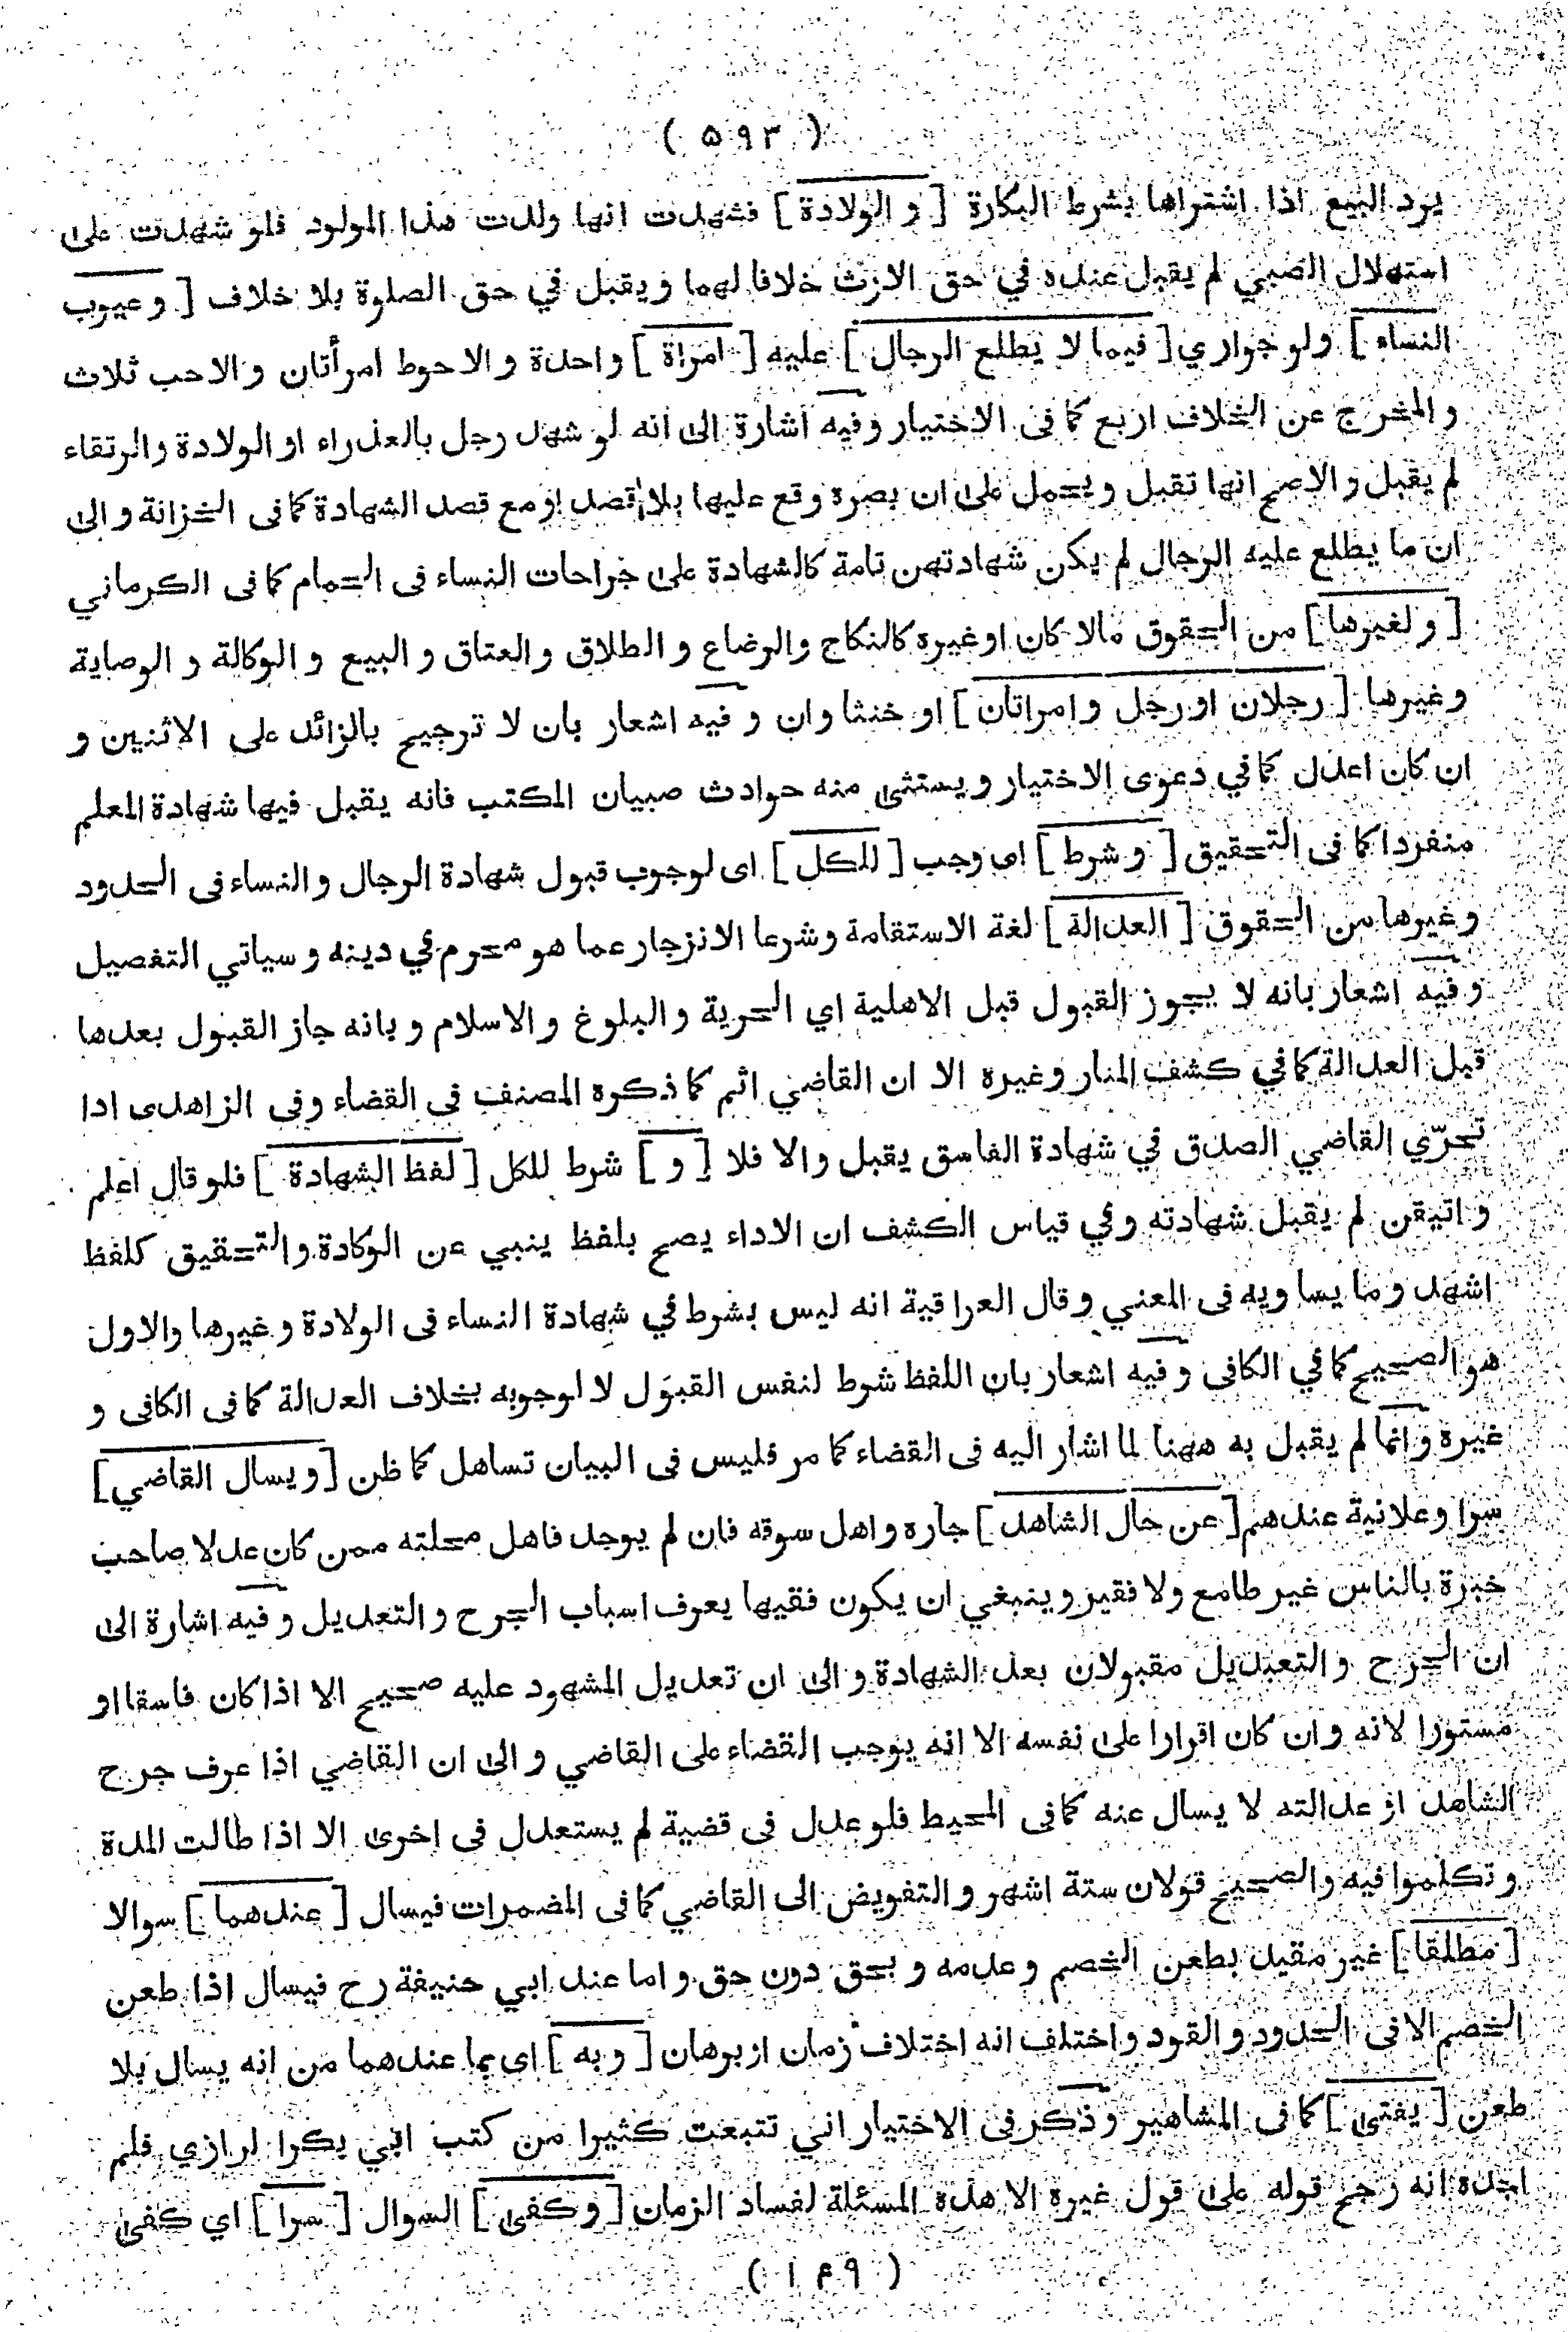 ( ۵۹۳ )
يرد البيع اذا اشتراها بشرط البكارة [ و الولادة ] فشهدت انها ولدت هذا المولود فلو شهدت على
استهلال الصبي لم يقبل عنده في حق الارث خلافا لهما و يقبل في حق الصلوة بلا خلاف [ و عيوب
النساء ] ولو جواري [ فيما لا يطلع الرجال ] عليه [ امراة ] واحدة و الاحوط امرأتان و الاحب ثلاث
و المخرج عن الخلاف اربع كما فى الاختيار و فيه اشارة الى انه لو شهد رجل بالعذراء او الولادة والرتقاء
لم يقبل و الاصح انها تقبل و يحمل على ان بصره وقع عليها بلا قصد او مع قصد الشهادة كما فى الخزانة و الى
ان ما يطلع عليه الرجال لم يكن شهادتهن تامة كالشهادة على جراحات النساء فى الحمام كما فى الكرماني
[ و لغيرها ] من الحقوق مالا كان اوغيره كالنكاح والرضاع و الطلاق والعتاق و البيع و الوكالة و الوصاية
وغيرها [ رجلان او رجل و امراتان ] او خنثا وان و فيه اشعار بان لا ترجيح بالزائد على الاثنين و
ان كان اعدل كما في دعوى الاختيار و يستثنى منه حوادث صبيان المكتب فانه يقبل فيها شهادة المعلم
منفردا كما فى التحقيق [ و شرط ] اى وجب [ للكل ] اى لوجوب قبول شهادة الرجال و النساء فى الحدود
وغيرها من الحقوق [ العدالة ] لغة الاستقامة وشرعا الانزجار عما هو محرم في دينه و سياتي التفصيل
و فيه اشعار بانه لا يجوز القبول قبل الاهلية اي الحرية و البلوغ و الاسلام و بانه جاز القبول بعدها
قبل العدالة كما في كشف المنار وغيره الا ان القاضي اثم كما ذكره المصنف فى القضاء وفى الزاهدى اذا
تحرّي القاضي الصدق في شهادة الفاسق يقبل والا فلا [ و ] شرط للكل [ لفظ الشهادة ] فلو قال اعلم
و اتيقن لم يقبل شهادته وفي قياس الكشف ان الاداء يصح بلفظ ينبي عن الوكادة و التحقيق كلفظ
اشهد وما يساويه فى المعني و قال العراقية انه ليس بشرط في شهادة النساء فى الولادة و غيرها والاول
هو الصحيح كما في الكافى و فيه اشعار بان اللفظ شرط لنفس القبول لا لوجوبه بخلاف العدالة كما فى الكافى و
غيره وانما لم يقبل به ههنا لما اشار اليه فى القضاء كما مر فليس فى البيان تساهل كما ظن [ و يسال القاضي ]
سرا وعلانية عندهم [ عن حال الشاهد ] جاره واهل سوقه فان لم يوجد فاهل محلته ممن كان عدلا صاحب
خبرة بالناس غير طامع ولا فقير و ينبغي ان يكون فقيها يعرف اسباب الجرح و التعديل و فيه اشارة الى
ان الجرح و التعديل مقبولان بعد الشهادة و الى ان تعديل المشهود عليه صحيح الا اذا كان فاسقا او
مستورا لانه و ان كان اقرارا على نفسه الا انه يوجب القضاء على القاضي و الى ان القاضي اذا عرف جرح
الشاهد او عدالته لا يسال عنه كما فى المحيط فلو عدل فى قضية لم يستعدل فى اخرى الا اذا طالت المدة
و تكلموا فيه والصحيح قولان ستة اشهر و التفويض الى القاضي كما فى المضمرات فيسال [ عندهما ] سوالا
[ مطلقا ] غير مقيد بطعن الخصم و عدمه و بحق دون حق و اما عند ابي حنيفة رح فيسال اذا طعن
الخصم الا فى الحدود و القود و اختلف انه اختلاف زمان او برهان [ و به ] اى بما عندهما من انه يسال بلا
طعن [ يفتى ] كما فى المشاهير و ذكر فى الاختيار اني تتبعت كثيرا من كتب ابي بكر الرازي فلم
اجده انه رجح قوله على قول غيره الا هذه المسئلة لفساد الزمان [ و كفى ] السوال [ سرا ] اي كفى
( ۱۴۹ )